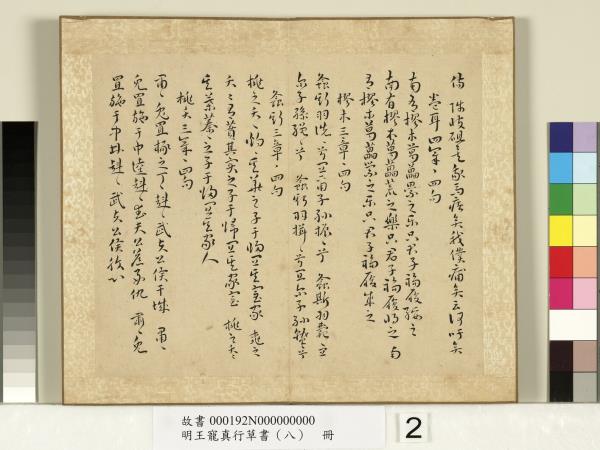 傷 陟彼砠矣我馬瘏矣我僕痡矣云何吁矣
卷耳四章〻四句
南有樛木葛藟纍之樂只君子福履綏之
南有樛木葛藟荒之樂只君子福履將之 南
有樛木葛藟縈之樂只君子福履成之
樛木三章〻四句
螽斯羽詵〻兮宜爾子孫振〻兮 螽斯羽薨〻兮宜
爾子孫繩〻兮 螽斯羽揖〻兮宜爾子孫蟄〻兮
螽斯三章〻四句
桃之夭〻灼〻其華之子于歸宜其室家 桃之
夭〻有蕡其實之子于歸宜其家室 桃之夭〻
其葉蓁〻之子于歸宜其家人
桃夭三章〻四句
肅〻兔罝椓之丁〻赳〻武夫公侯干城 肅〻
兔罝施于中逵赳〻武夫公侯好仇 肅〻兔
罝施于中林赳〻武夫公侯腹心
故書 000192N000000000
明王寵真行草書（八） 冊
2